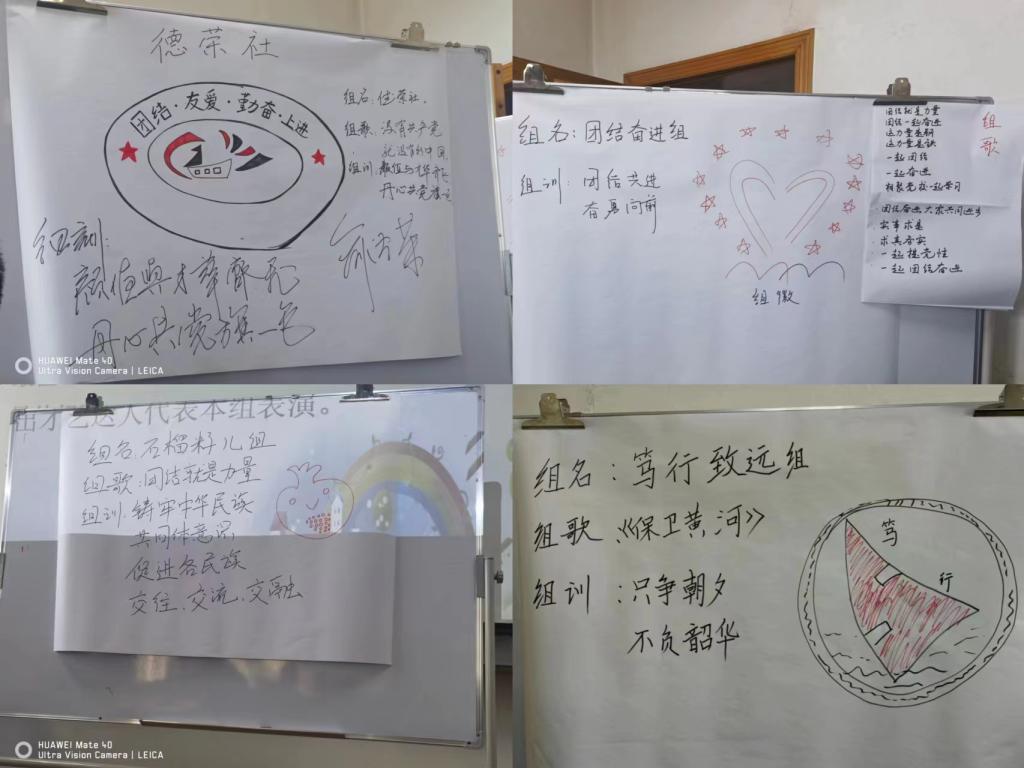 德荣社
团结·友爱·勤奋·上进
组名：德荣社
组歌：没有共产党
就没有新中国
组训：颜值与才华齐飞
丹心共党旗一色
组训：
颜值与才华齐飞
丹心共党旗一色
HUAWEI Mate 40
Ultra Vision Camera | LEICA
组名：团结奋进组
组训：团结共进
奋勇向前
组徽
组歌
团结就是力量
团结一起奋进
这力量是钢
这力量是铁
一起团结
一起奋进
相聚党校一起学习
团结奋进大家共同进步
实事求是
求真务实
一起提党性
一起团结奋进
才艺达人代表本组表演。
组名：石榴籽儿组
组歌：团结就是力量
组训：铸牢中华民族
共同体意识
促进各民族
交往、交流、交融
HUAWEI Mate 40
Ultra Vision Camera | LEICA
组名：笃行致远组
组歌《保卫黄河》
组训：只争朝夕
不负韶华
笃
行